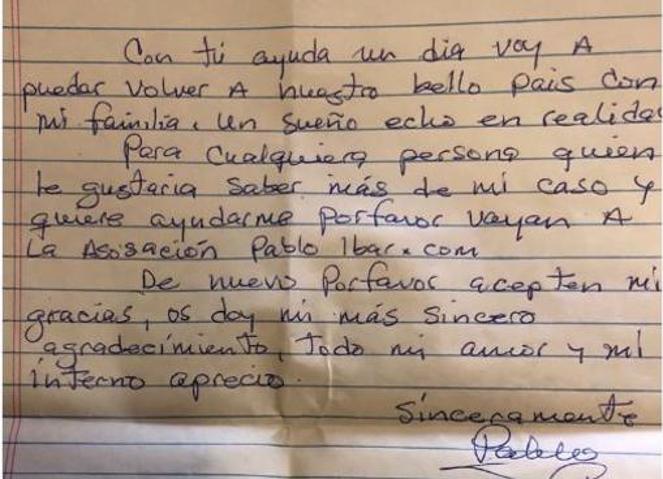 Con tú ayuda un dia voy A
puedar volver A nuestro bello pais con
mi familia. Un sueño echo en realidad
Para cualquiera persona quien
le gustaria saber más de mi caso y
quiere ayudarme porfavor vayan A
La Asosación Pablo Ibar.com
De nuevo Porfavor acepten mi
gracias, os doy mi más sincero
agradecimiento, todo mi amor y mi
interno aprecio.
Sinceramente
Pablo